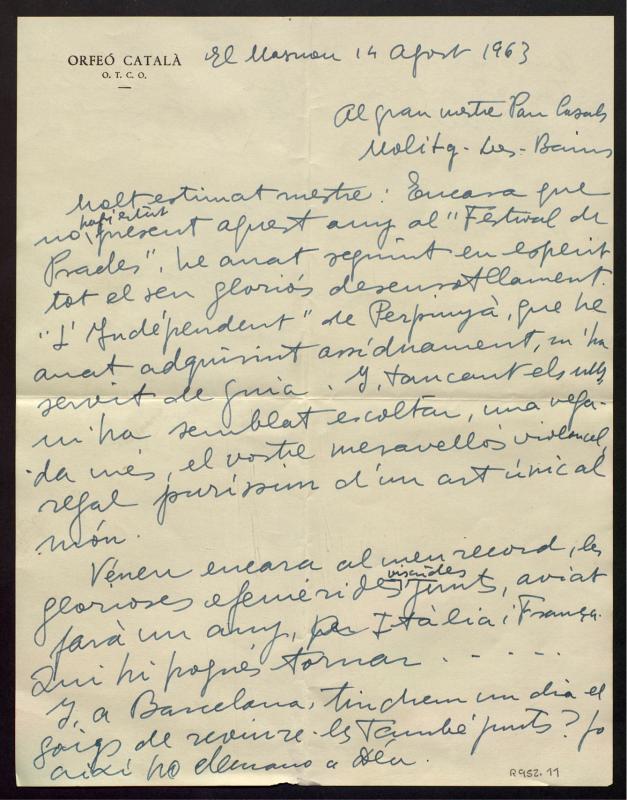 ORFEÓ CATALÀ
O. T. C. O.
El Masnou 14 Agost 1963
Al gran mestre Pau Casals
Molitg-Les-Bains
Molt estimat mestre: Encara que
no hagi estat present aquest any al "Festival de
Prades", he anat seguint en esperit
tot el seu gloriós desenrotllament.
"L'Indépendent" de Perpinyà, que he
anat adquirint assíduament, m'ha
servit de guia. I, tancant els ulls,
m'ha semblat escoltar, una vega-
da més, el vostre meravellós violoncel,
regal puríssim d'un art únic al
món.
Vénen encara al meu record, les
glorioses efemérides viscudes junts, aviat
farà un any, per Itàlia i França.
Qui hi pogués tornar . - - - -
I, a Barcelona, tindrem un dia el
goig de reviure-les també junts? Jo
així ho demano a Déu.
R952.11